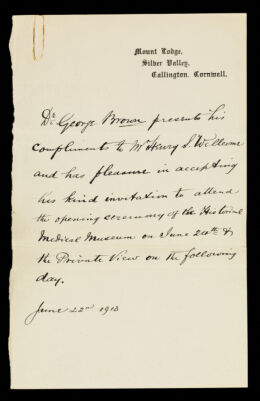 Mount Lodge,
Silver Valley,
Callington. Cornwall.
Dr. George Brown presents his
compliments to Mr Henry S. Wellcome
and has pleasure in accepting
his kind invitation to attend
the opening ceremony of the Historical
Medical Museum on June 24th &
the Private View on the following
day.
June 22nd 1913